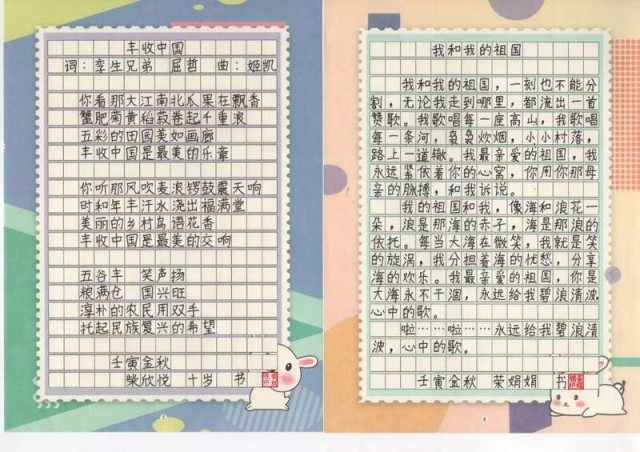 丰收中国
词：孪生兄弟 屈哲 曲：姬凯
你看那大江南北瓜果在飘香
蟹肥菊黄稻菽卷起千重浪
五彩的田园美如画廊
丰收中国是最美的乐章
你听那风吹麦浪锣鼓震天响
时和年丰汗水浇出福满堂
美丽的乡村鸟语花香
丰收中国是最美的交响
五谷丰 笑声扬
粮满仓 国兴旺
淳朴的农民用双手
托起民族复兴的希望
壬寅金秋
欣悦 十岁 书
我和我的祖国
我和我的祖国，一刻也不能分
割，无论我走到哪里，都流出一首
赞歌。我歌唱每一座高山，我歌唱
每一条河，袅袅炊烟，小小村落，
路上一道辙。我最亲爱的祖国，我
永远紧依着你的心窝，你用你那母
亲的脉搏，和我诉说。
我的祖国和我，像海和浪花一
朵，浪是那海的赤子，海是那浪的
依托。每当大海在微笑，我就是笑
的旋涡，我分担着海的忧愁，分享
海的欢乐。我最亲爱的祖国，你是
大海永不干涸，永远给我碧浪清波，
心中的歌。
啦……啦……永远给我碧浪清
波，心中的歌。
壬寅金秋 荣娟娟 书